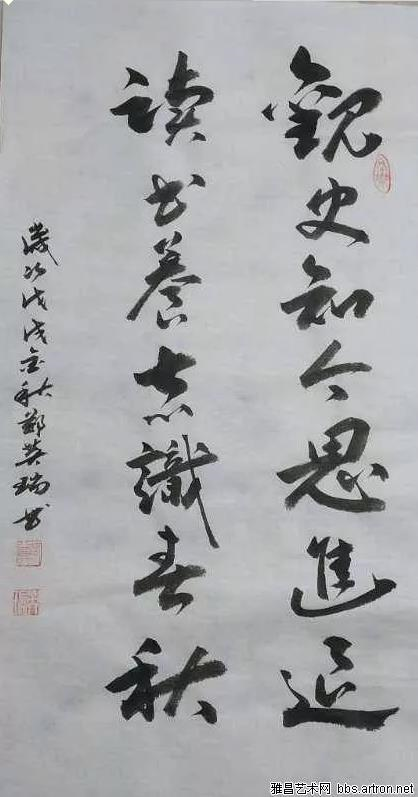 觀史知今思進退
读书養志識春秋
歲次戊戌金秋鄭英瑞书
雅昌艺术网 bbs.artron.net